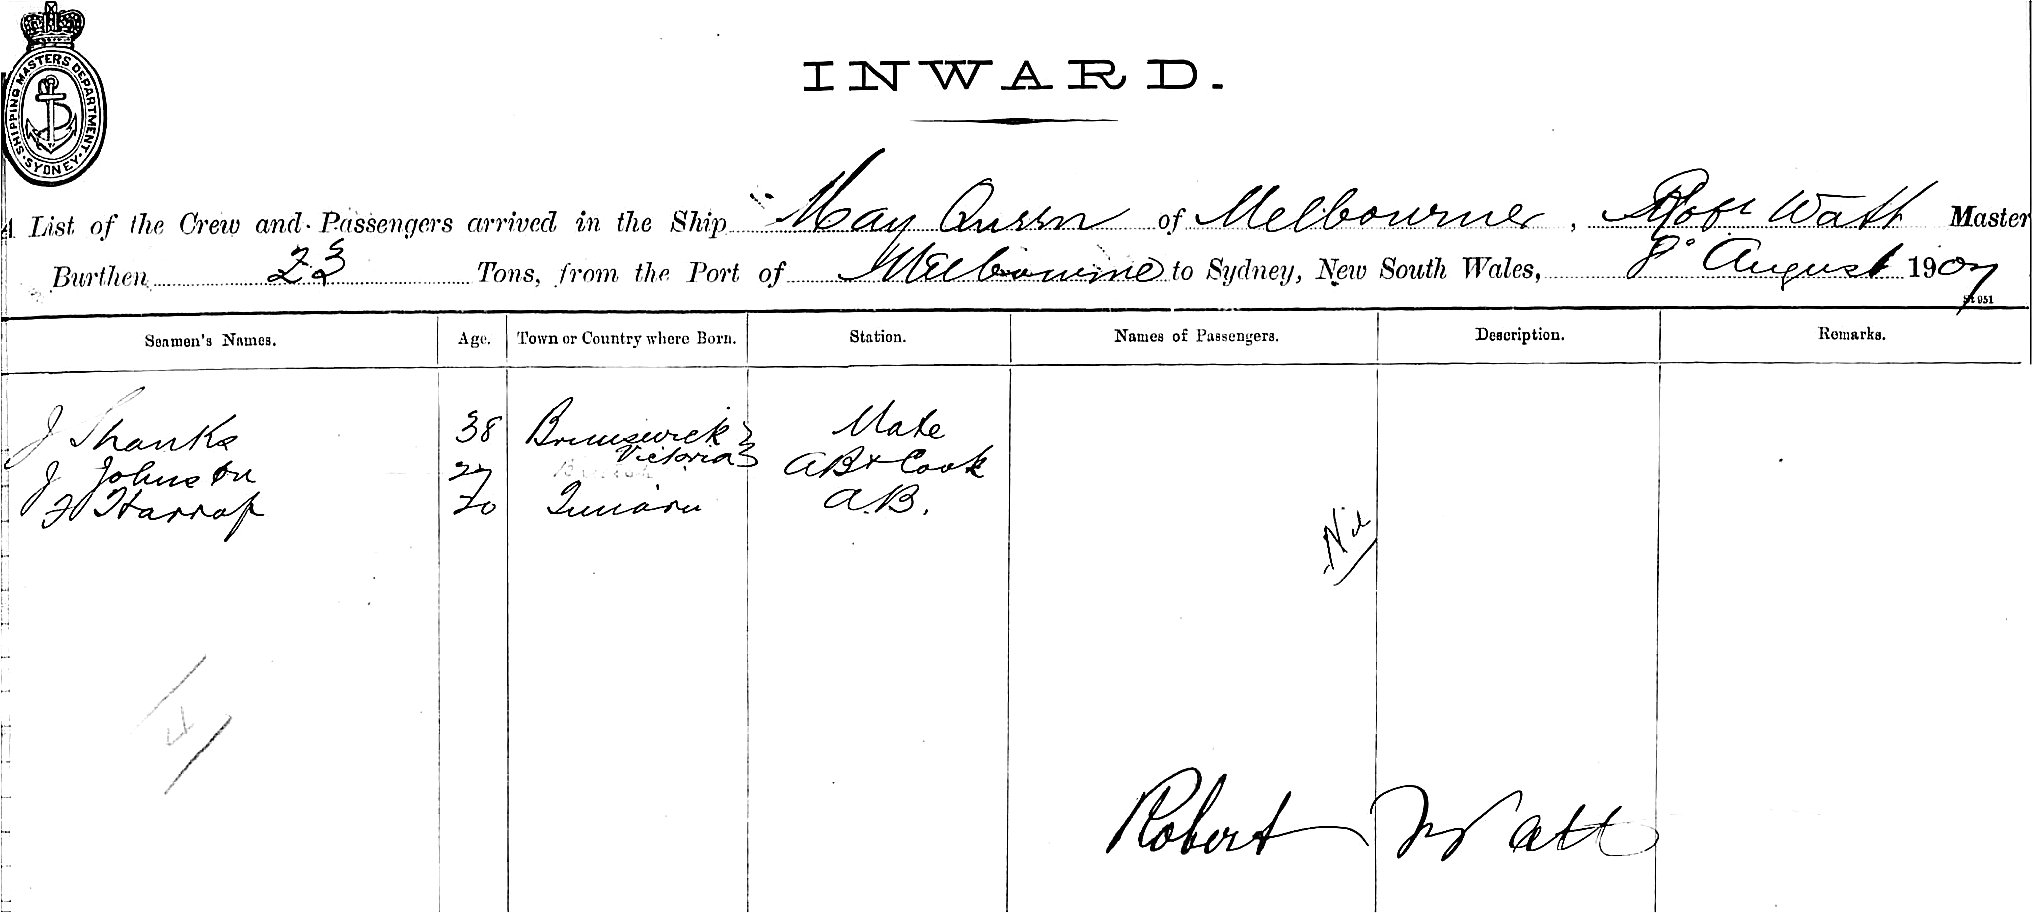 SHIPPING MASTERS DEPARTMENT
SYDNEY
INWARD.
A List of the Crew and Passengers arrived in the Ship "May Queen of Melbourne, Robt Watt Master
Burthen 23 Tons, from the Port of Melbourne to Sydney, New South Wales, 8° August 1907
St 951
Seamen's Names. Age. Town or Country where Born. Station. Names of Passengers. Description. Remarks.
J Shanks 38 Brunswick Mate
Victoria
J Johnston 27 AB & Cook
F Harrap 20 Timaru A.B.
Nil
Robert Watt